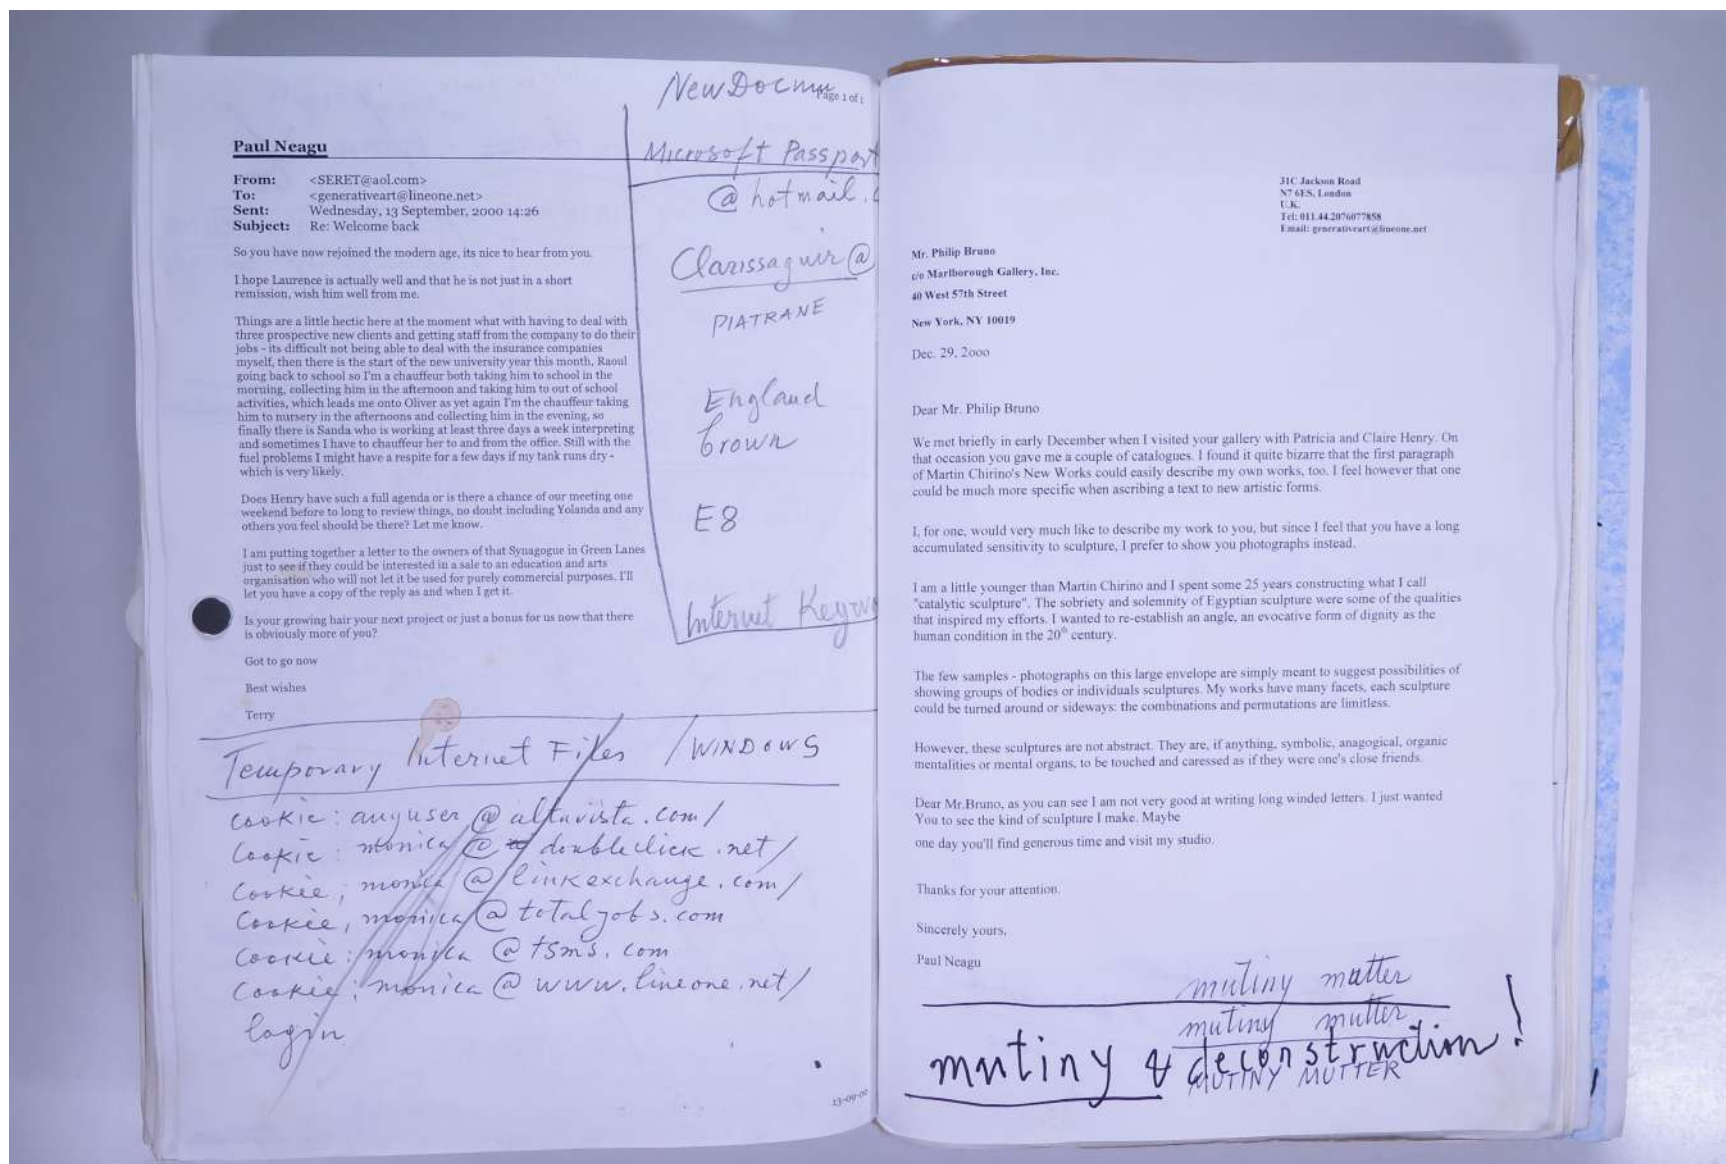 NewDocmu
Page 1 of 1
Paul Neagu
Microsoft Passport
@ hotmail.
Clarissaguir@
PIATRANE
England
brown
E8
Internet
From: <SERET@aol.com>
To: <generativeart@lineone.net>
Sent: Wednesday, 13 September, 2000 14:26
Subject: Re: Welcome back
So you have now rejoined the modern age, its nice to hear from you.
I hope Laurence is actually well and that he is not just in a short
remission, wish him well from me.
Things are a little hectic here at the moment what with having to deal with
three prospective new clients and getting staff from the company to do their
jobs - its difficult not being able to deal with the insurance companies
myself, then there is the start of the new university year this month, Raoul
going back to school so I'm a chauffeur both taking him to school in the
morning, collecting him in the afternoon and taking him to out of school
activities, which leads me onto Oliver as yet again I'm the chauffeur taking
him to nursery in the afternoons and collecting him in the evening, so
finally there is Sanda who is working at least three days a week interpreting
and sometimes I have to chauffeur her to and from the office. Still with the
fuel problems I might have a respite for a few days if my tank runs dry -
which is very likely.
Does Henry have such a full agenda or is there a chance of our meeting one
weekend before to long to review things, no doubt including Yolanda and any
others you feel should be there? Let me know.
I am putting together a letter to the owners of that Synagogue in Green Lanes
just to see if they could be interested in a sale to an education and arts
organisation who will not let it be used for purely commercial purposes. I'll
let you have a copy of the reply as and when I get it.
Is your growing hair your next project or just a bonus for us now that there
is obviously more of you?
Got to go now
Best wishes
Terry
Temporary Internet Files /WINDOWS
cookie: anyuser@altavista.com/
Cookie: monica@doubleclick.net/
Cookie; monica@linkexchange.com/
Cookie, monica@totaljobs.com
Cookie: monica@tsms.com
Cookie: monica@www.lineone.net/
login
13-09-00
31C Jackson Road
N7 6ES, London
U.K.
Tel: 011.44.2076077858
Email: generativeart@lineone.net
Mr. Philip Bruno
c/o Marlborough Gallery, Inc.
40 West 57th Street
New York, NY 10019
Dec. 29, 2000
Dear Mr. Philip Bruno
We met briefly in early December when I visited your gallery with Patricia and Claire Henry. On
that occasion you gave me a couple of catalogues. I found it quite bizarre that the first paragraph
of Martin Chirino's New Works could easily describe my own works, too. I feel however that one
could be much more specific when ascribing a text to new artistic forms.
I, for one, would very much like to describe my work to you, but since I feel that you have a long
accumulated sensitivity to sculpture, I prefer to show you photographs instead.
I am a little younger than Martin Chirino and I spent some 25 years constructing what I call
"catalytic sculpture". The sobriety and solemnity of Egyptian sculpture were some of the qualities
that inspired my efforts. I wanted to re-establish an angle, an evocative form of dignity as the
human condition in the 20th century.
The few samples - photographs on this large envelope are simply meant to suggest possibilities of
showing groups of bodies or individuals sculptures. My works have many facets, each sculpture
could be turned around or sideways: the combinations and permutations are limitless.
However, these sculptures are not abstract. They are, if anything, symbolic, anagogical, organic
mentalities or mental organs, to be touched and caressed as if they were one's close friends.
Dear Mr.Bruno, as you can see I am not very good at writing long winded letters. I just wanted
You to see the kind of sculpture I make. Maybe
one day you'll find generous time and visit my studio.
Thanks for your attention.
Sincerely yours,
Paul Neagu
mutiny matter
mutiny mutter
mutiny & deconstruction!
MUTINY MUTTER